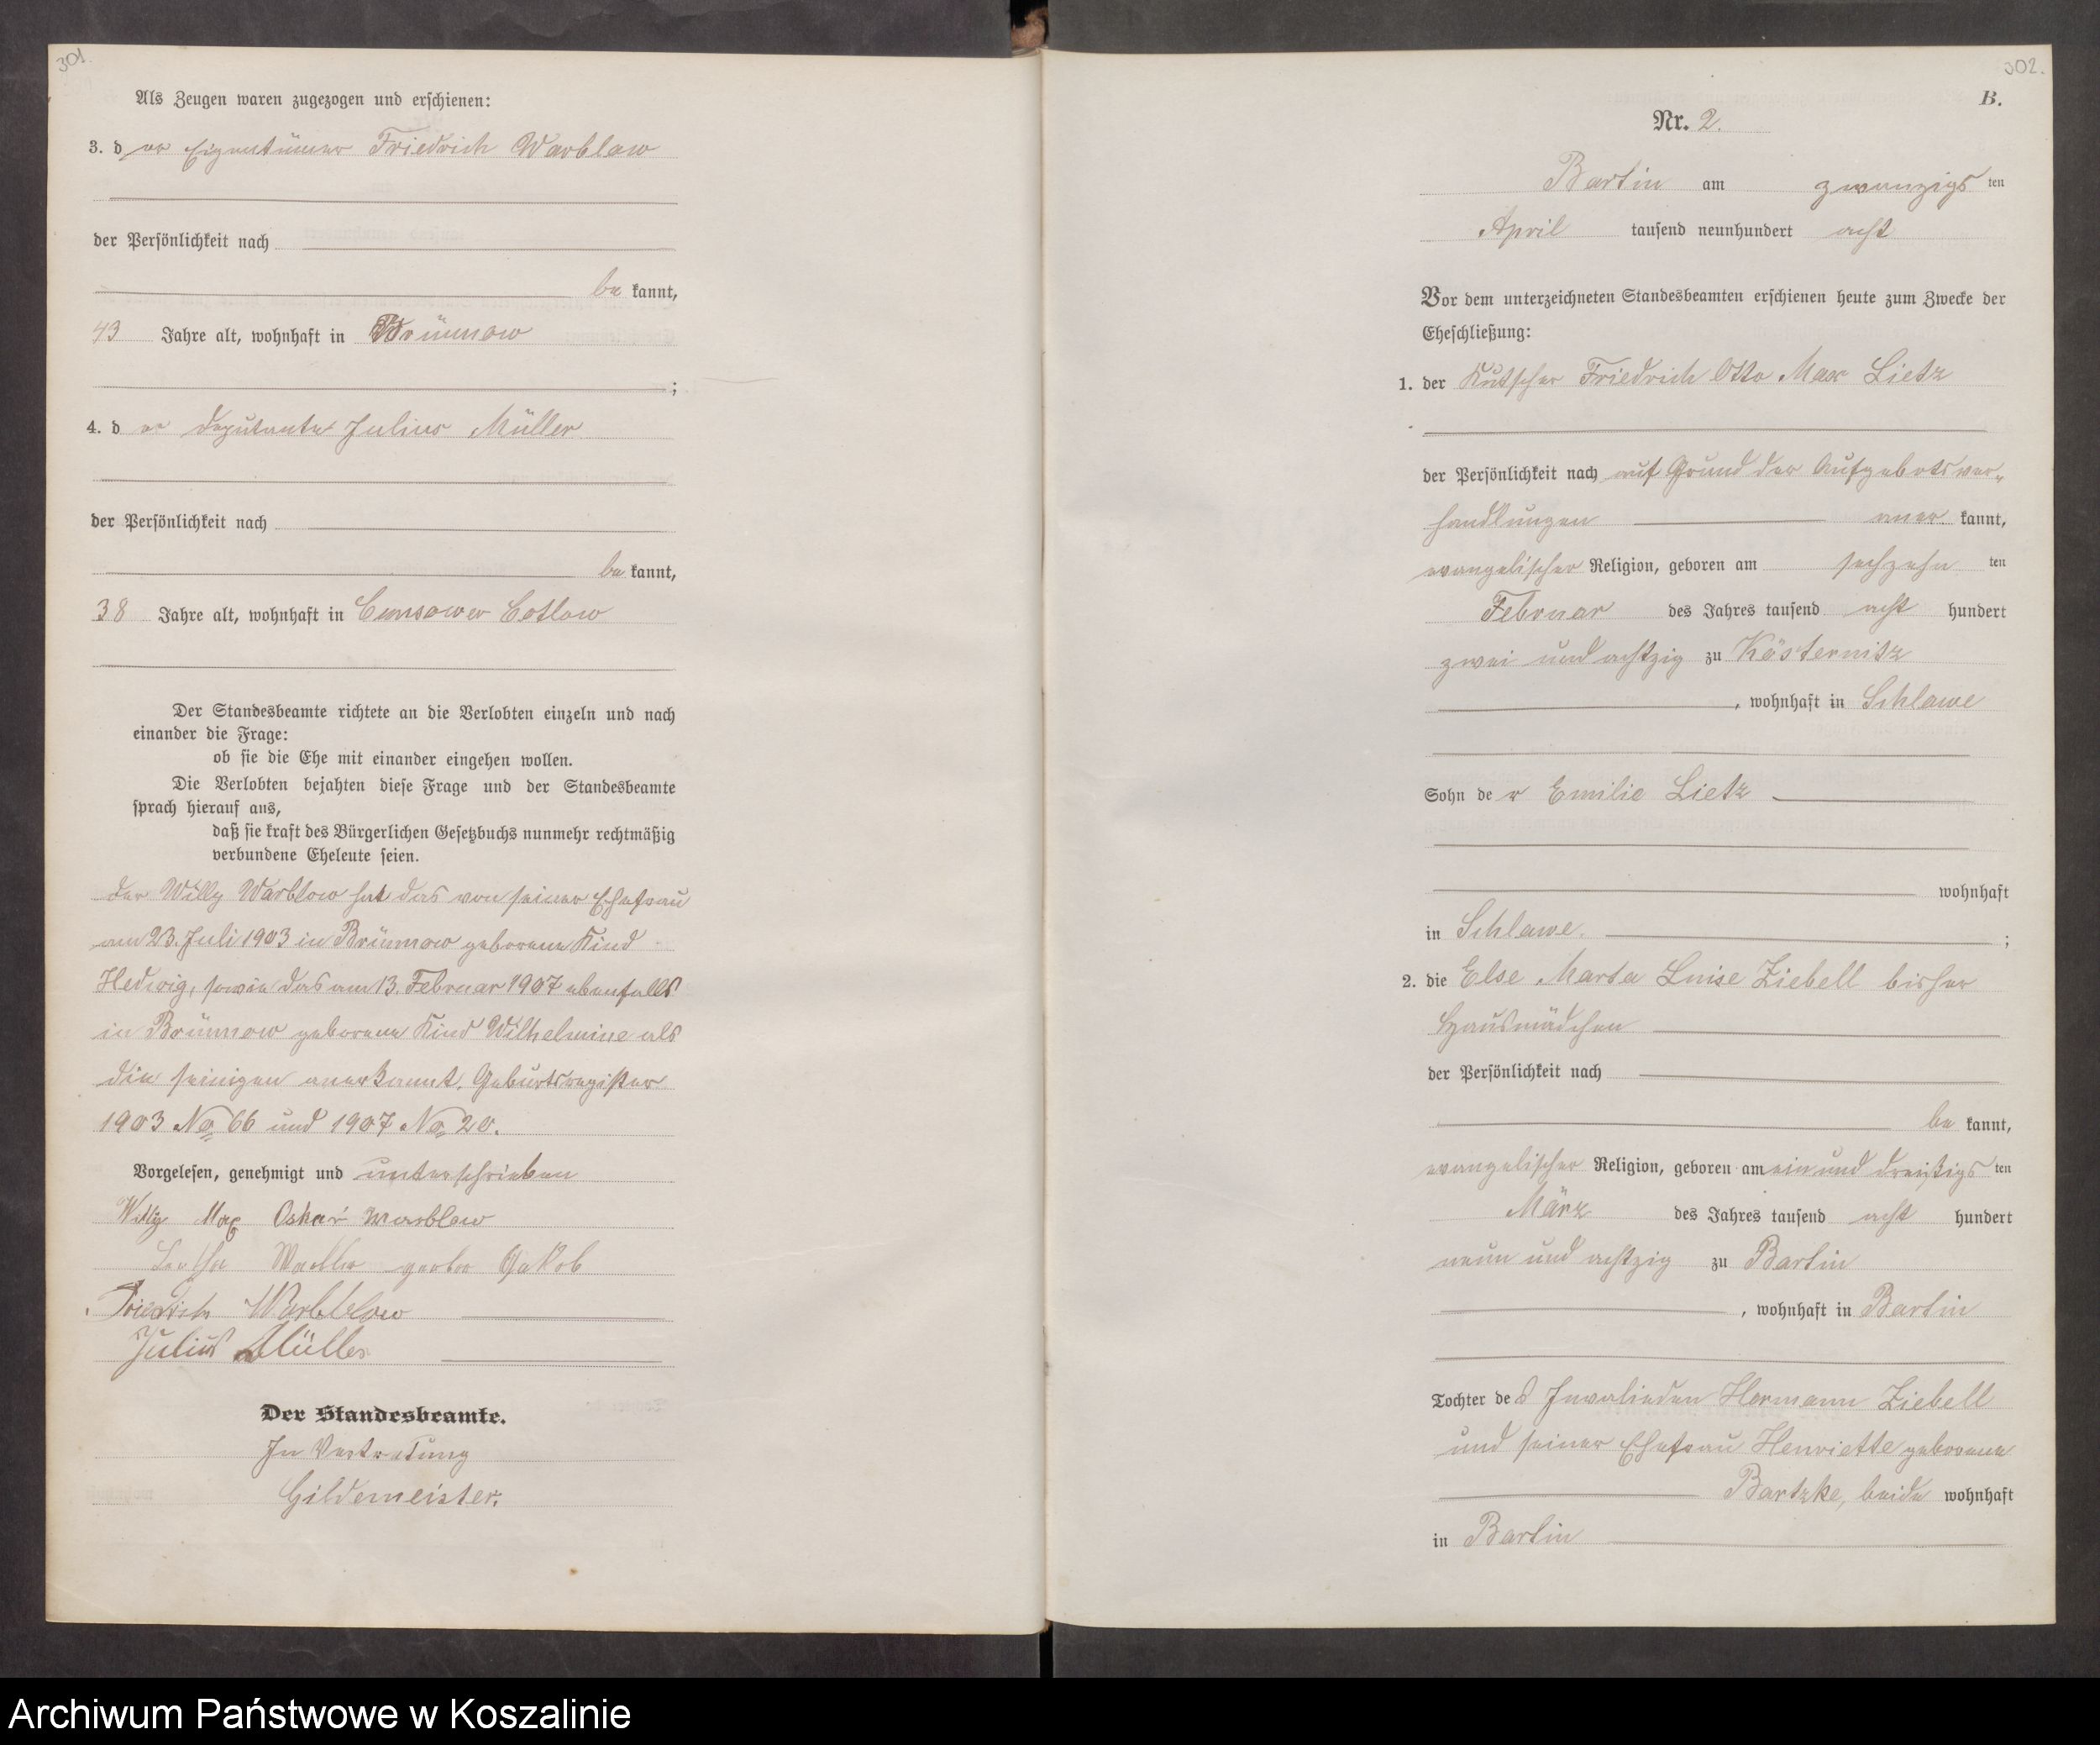 301.
Als Zeugen waren zugezogen und erschienen:
3. der Eigentümer Friedrich Warblow
der Persönlichkeit nach
bekannt,
43 Jahre alt, wohnhaft in Brünnow
;
4. der Deputante Julius Müller
der Persönlichkeit nach
bekannt,
38 Jahre alt, wohnhaft in Cunsower Cotlow
Der Standesbeamte richtete an die Verlobten einzeln und nach
einander die Frage:
ob sie die Ehe mit einander eingehen wollen.
Die Verlobten bejahten diese Frage und der Standesbeamte
sprach hierauf aus,
daß sie kraft des Bürgerlichen Gesetzbuchs nunmehr rechtmäßig
verbundene Eheleute seien.
Der Willy Warblow hat das von seiner Ehefrau
am 23. Juli 1903 in Brünnow geborene Kind
Hedwig, sowie das am 13. Februar 1907 ebenfalls
in Brünnow geborene Kind Wilhelmine als
die seinigen anerkannt. Geburtsregister
1903 No 66 und 1907 No 20.
Vorgelesen, genehmigt und unterschrieben
Willy Max Oskar Warblow
Jakob
Friedrich Warblow
Julius Müller
Der Standesbeamte.
In Vertretung
Gildemeister.
302.
B.
Nr. 2.
Bartin am zwanzigsten
April tausend neunhundert acht
Vor dem unterzeichneten Standesbeamten erschienen heute zum Zwecke der
Eheschließung:
1. der Kutscher Friedrich Otto Max Lietz
der Persönlichkeit nach auf Grund der Aufgebotsver-
handlungen anerkannt,
evangelischer Religion, geboren am sechzehnten
Februar des Jahres tausend achthundert
zwei und achtzig zu Kösternitz
, wohnhaft in Schlawe
Sohn der Emilie Lietz
wohnhaft
in Schlawe.
;
2. die Else Marta Luise Ziebell bisher
Hausmädchen
der Persönlichkeit nach
bekannt,
evangelischer Religion, geboren am ein und dreißigsten
März des Jahres tausend achthundert
neun und achtzig zu Bartin
, wohnhaft in Bartin
Tochter des Invalieden Hermann Ziebell
und seiner Ehefrau Henriette geborene
Bartzke, beide wohnhaft
in Bartin
Archiwum Państwowe w Koszalinie